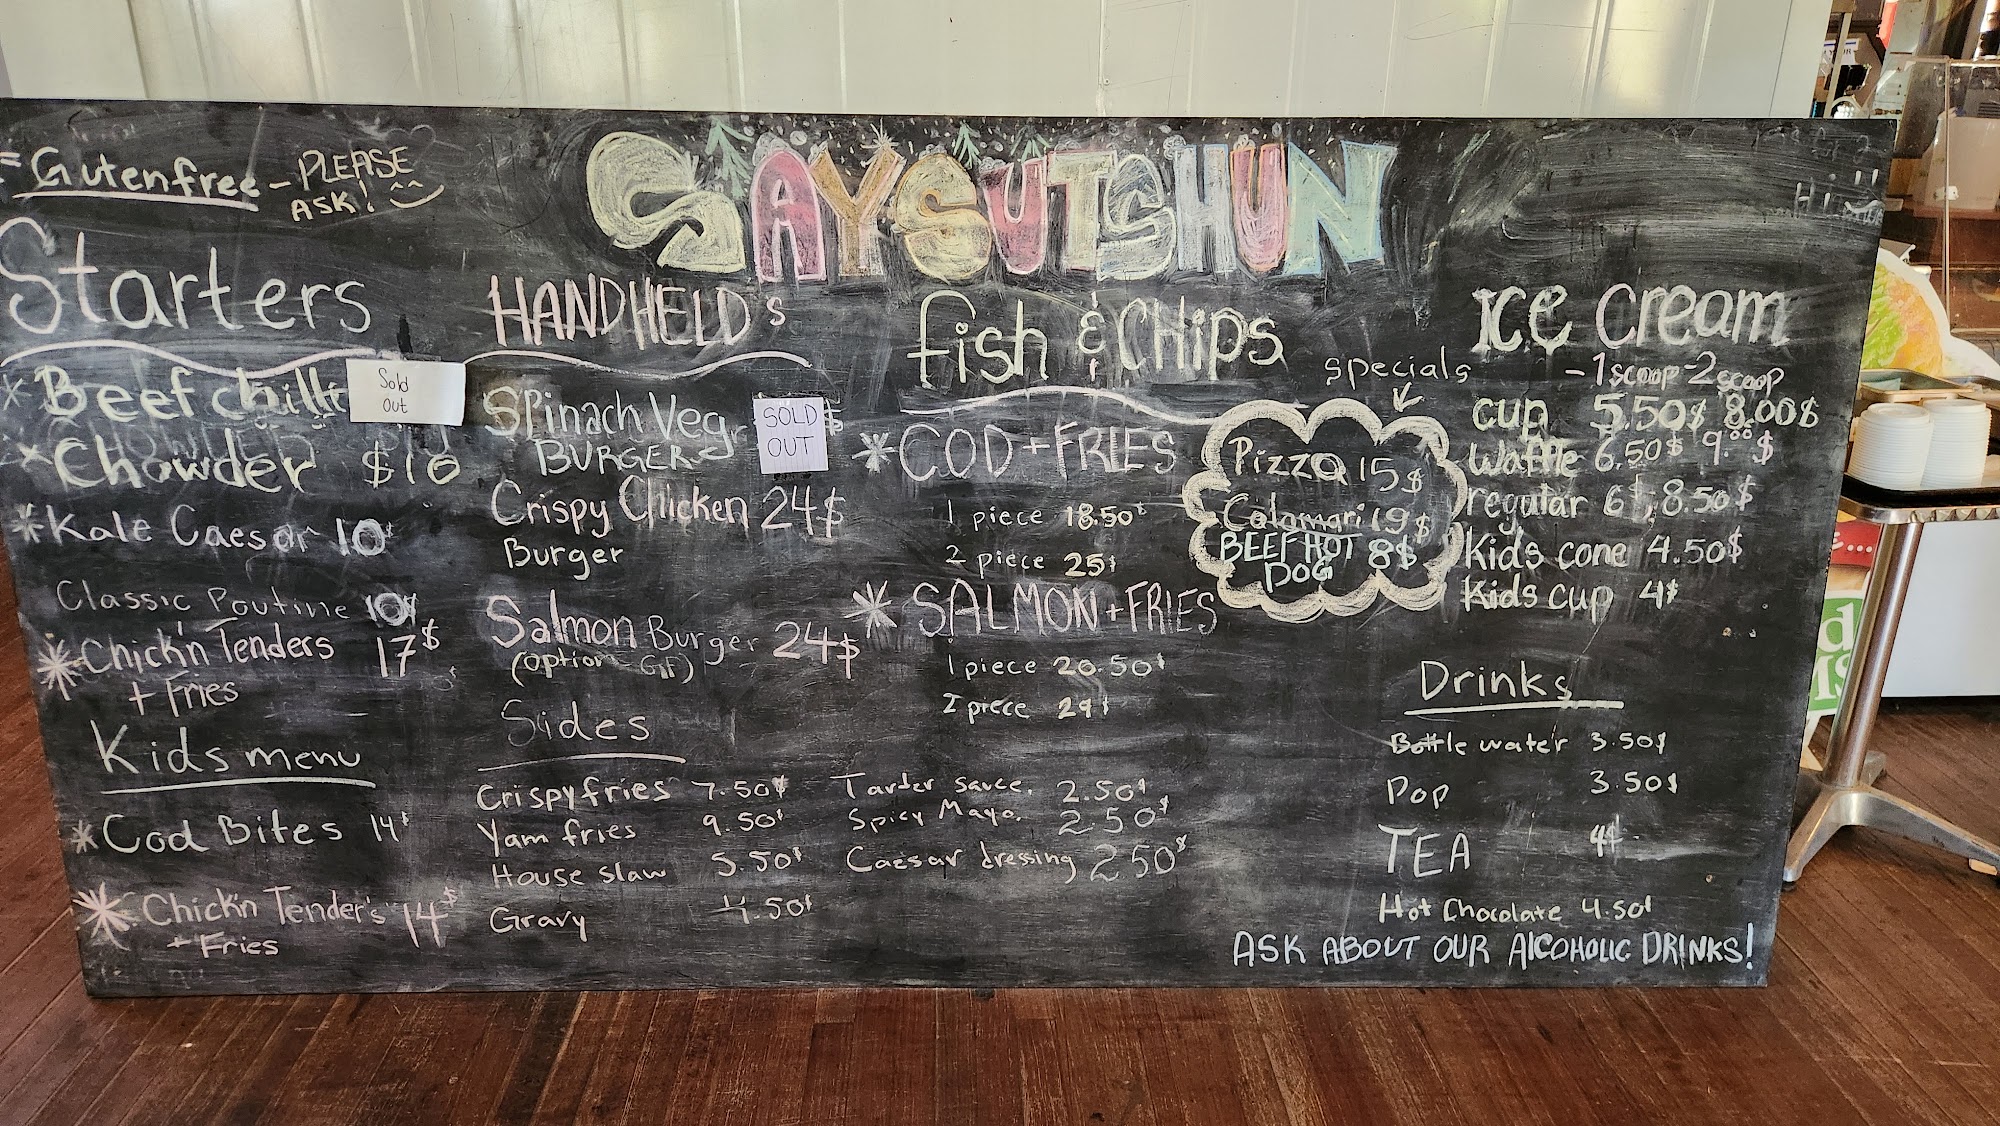 SAYSUTSHUN
= Gutenfree - PLEASE
ASK!
Starters
* Beef chilli
Sold
Out
* Chowder $10
* Kale Caesar 10$
Classic Poutine 10$
* Chick'n Tenders 17$
+ Fries
Kids menu
* Cod Bites 14$
* Chick'n Tender's 14$
+ Fries
HANDHELD's
Spinach Veg
BURGER
SOLD
OUT
Crispy Chicken 24$
Burger
Salmon Burger 24$
(option - GF)
Sides
Crispy fries 7.50$
Yam fries 9.50$
House slaw 5.50$
Gravy 4.50$
Tarter sauce. 2.50$
Spicy Mayo. 2.50$
Caesar dressing 2.50$
fish & CHips
* COD + FRIES
1 piece 18.50$
2 piece 25$
* SALMON + FRIES
1 piece 20.50$
2 piece 29$
specials
Pizza 15$
Calamari 19$
BEEF HOT 8$
DOG
Hi
Ice cream
- 1 scoop - 2 scoop
cup 5.50$ 8.00$
Waffle 6.50$ 9.00$
regular 6$ 8.50$
Kids cone 4.50$
Kids cup 4$
Drinks
Bottle water 3.50$
Pop 3.50$
TEA 4$
Hot Chocolate 4.50$
ASK ABOUT OUR AlCOHOLIC DRINKS!